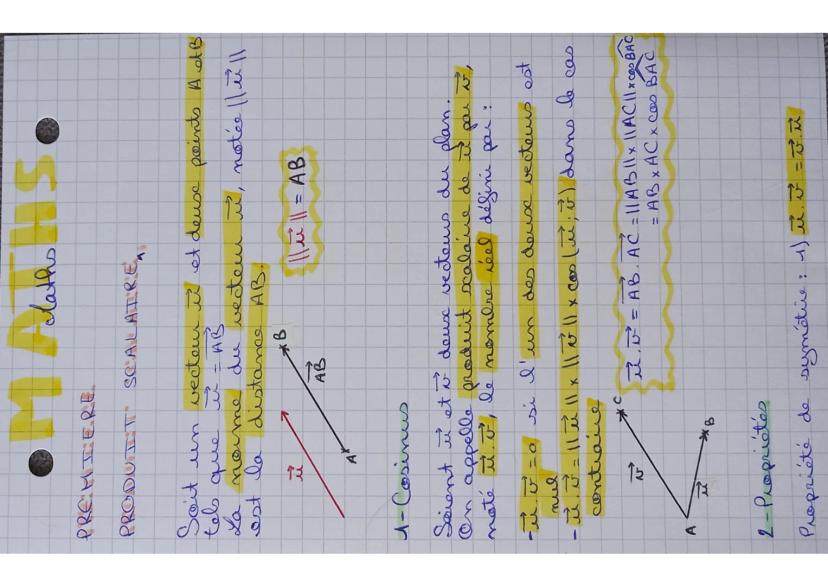 MATHS
Maths
PREMIERE
PRODUIT SCALAIRE
Soit un vecteur u⃗ et deux points A et B
tels que u⃗ = AB⃗
La norme du vecteur u⃗, notée ||u⃗||
est la distance AB.
u⃗
A
B
AB⃗
||u⃗|| = AB
1-Cosinus
Soient u⃗ et v⃗ deux vecteurs du plan.
On appelle produit scalaire de u⃗ par v⃗,
noté u⃗.v⃗, le nombre réel défini par :
- u⃗.v⃗ = 0 si l'un des deux vecteurs est
nul
- u⃗.v⃗ = ||u⃗|| × ||v⃗|| × cos(u⃗;v⃗) dans le cas
contraire
A
v⃗
C
u⃗
B
u⃗.v⃗ = AB⃗.AC⃗ = ||AB|| × ||AC|| × cos BAC
= AB × AC × cos BAC
2-Propriétés
Propriété de symétrie : 1) u⃗.v⃗ = v⃗.u⃗